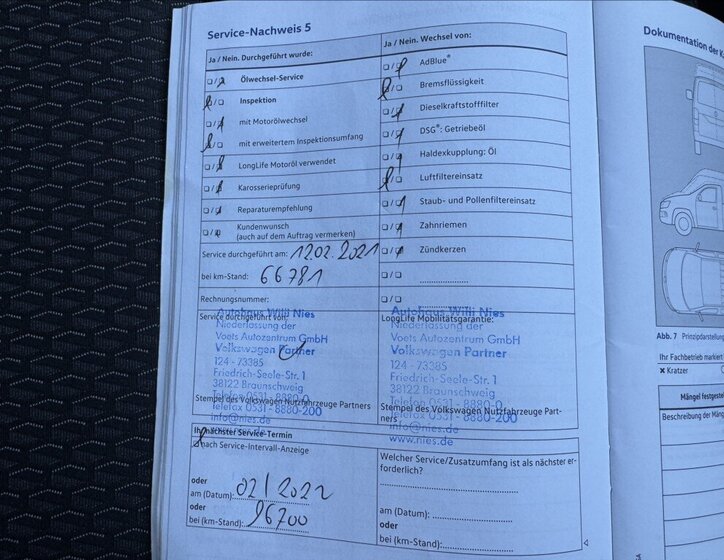 Service-Nachweis 5
Ja / Nein. Durchgeführt wurde:
Ölwechsel-Service
Inspektion
mit Motorölwechsel
mit erweitertem Inspektionsumfang
LongLife Motoröl verwendet
Karosserieprüfung
Reparaturempfehlung
Kundenwunsch
(auch auf dem Auftrag vermerken)
Service durchgeführt am: 12.02.2021
bei km-Stand: 66781
Rechnungsnummer:
Service durchgeführt von:
Autohaus Willi Nies
Niederlassung der
Voets Autozentrum GmbH
Volkswagen Partner
124 - 73385
Friedrich-Seele-Str. 1
38122 Braunschweig
Telefon 0531 - 8880-0
Stempel des Volkswagen Nutzfahrzeuge Partners
Telefax 0531 - 8880-200
info@nies.de
www.nies.de
Ja / Nein. Wechsel von:
AdBlue®
Bremsflüssigkeit
Dieselkraftstofffilter
DSG®: Getriebeöl
Haldexkupplung: Öl
Luftfiltereinsatz
Staub- und Pollenfiltereinsatz
Zahnriemen
Zündkerzen
LongLife Mobilitätsgarantie:
Autohaus Willi Nies
Niederlassung der
Voets Autozentrum GmbH
Volkswagen Partner
124 - 73385
Friedrich-Seele-Str. 1
38122 Braunschweig
Telefon 0531 - 8880-0
Stempel des Volkswagen Nutzfahrzeuge Part-
ners
Telefax 0531 - 8880-200
info@nies.de
www.nies.de
Ihr nächster Service-Termin
nach Service-Intervall-Anzeige
oder
am (Datum): 02/2022
oder
bei (km-Stand): 96700
Welcher Service/Zusatzumfang ist als nächster er-
forderlich?
am (Datum):
oder
bei (km-Stand):
Dokumentation der K
Abb. 7 Prinzipdarstellung
Ihr Fachbetrieb markiert
× Kratzer
Mängel festgeste
Beschreibung der Mäng